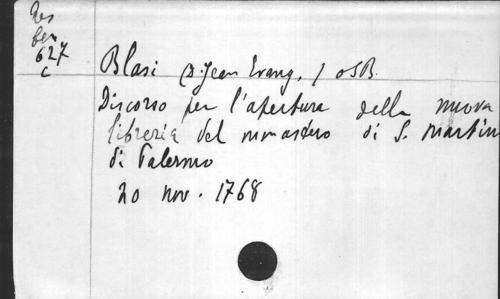 Res
ben
627
c
Blasi (D. Jean Evang.) OSB.
Discorso per l'apertura della nuova
libreria del monastero di S. Martin
di Palermo
20 nov. 1768